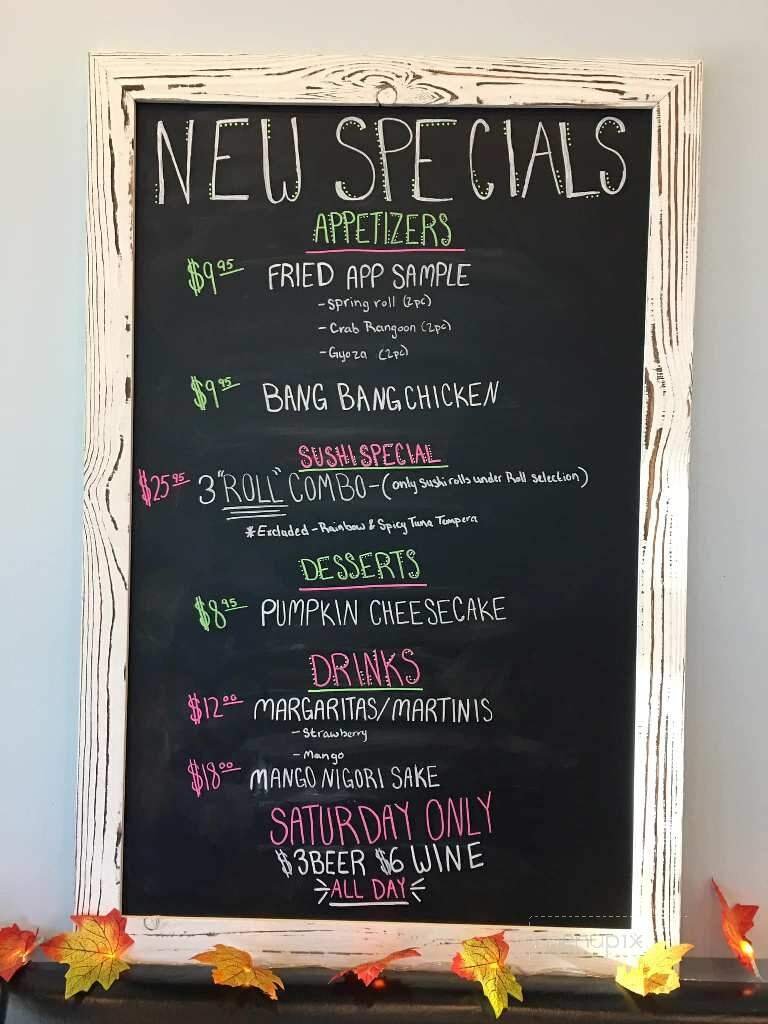 NEW SPECIALS
APPETIZERS
$9.95 FRIED APP SAMPLE
- Spring roll (2pc)
- Crab Rangoon (2pc)
- Gyoza (2pc)
$9.95 BANG BANG CHICKEN
SUSHI SPECIAL
$25.95 3 "ROLL" COMBO - (only sushi rolls under Roll selection)
*Excluded - Rainbow & Spicy Tuna Tempera
DESSERTS
$8.95 PUMPKIN CHEESECAKE
DRINKS
$12.00 MARGARITAS/MARTINIS
- Strawberry
- Mango
$18.00 MANGO NIGORI SAKE
SATURDAY ONLY
$3 BEER $6 WINE
ALL DAY